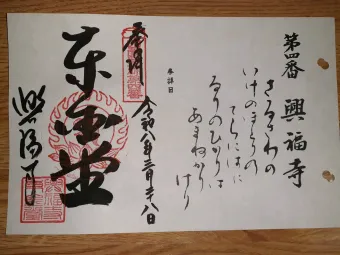 第四番　興福寺
さるさわの
いけのほとりの
てらにはに
るりのひかりは
あまねかり
けり
参詣日
奉拝
令和八年
東金堂
興福寺